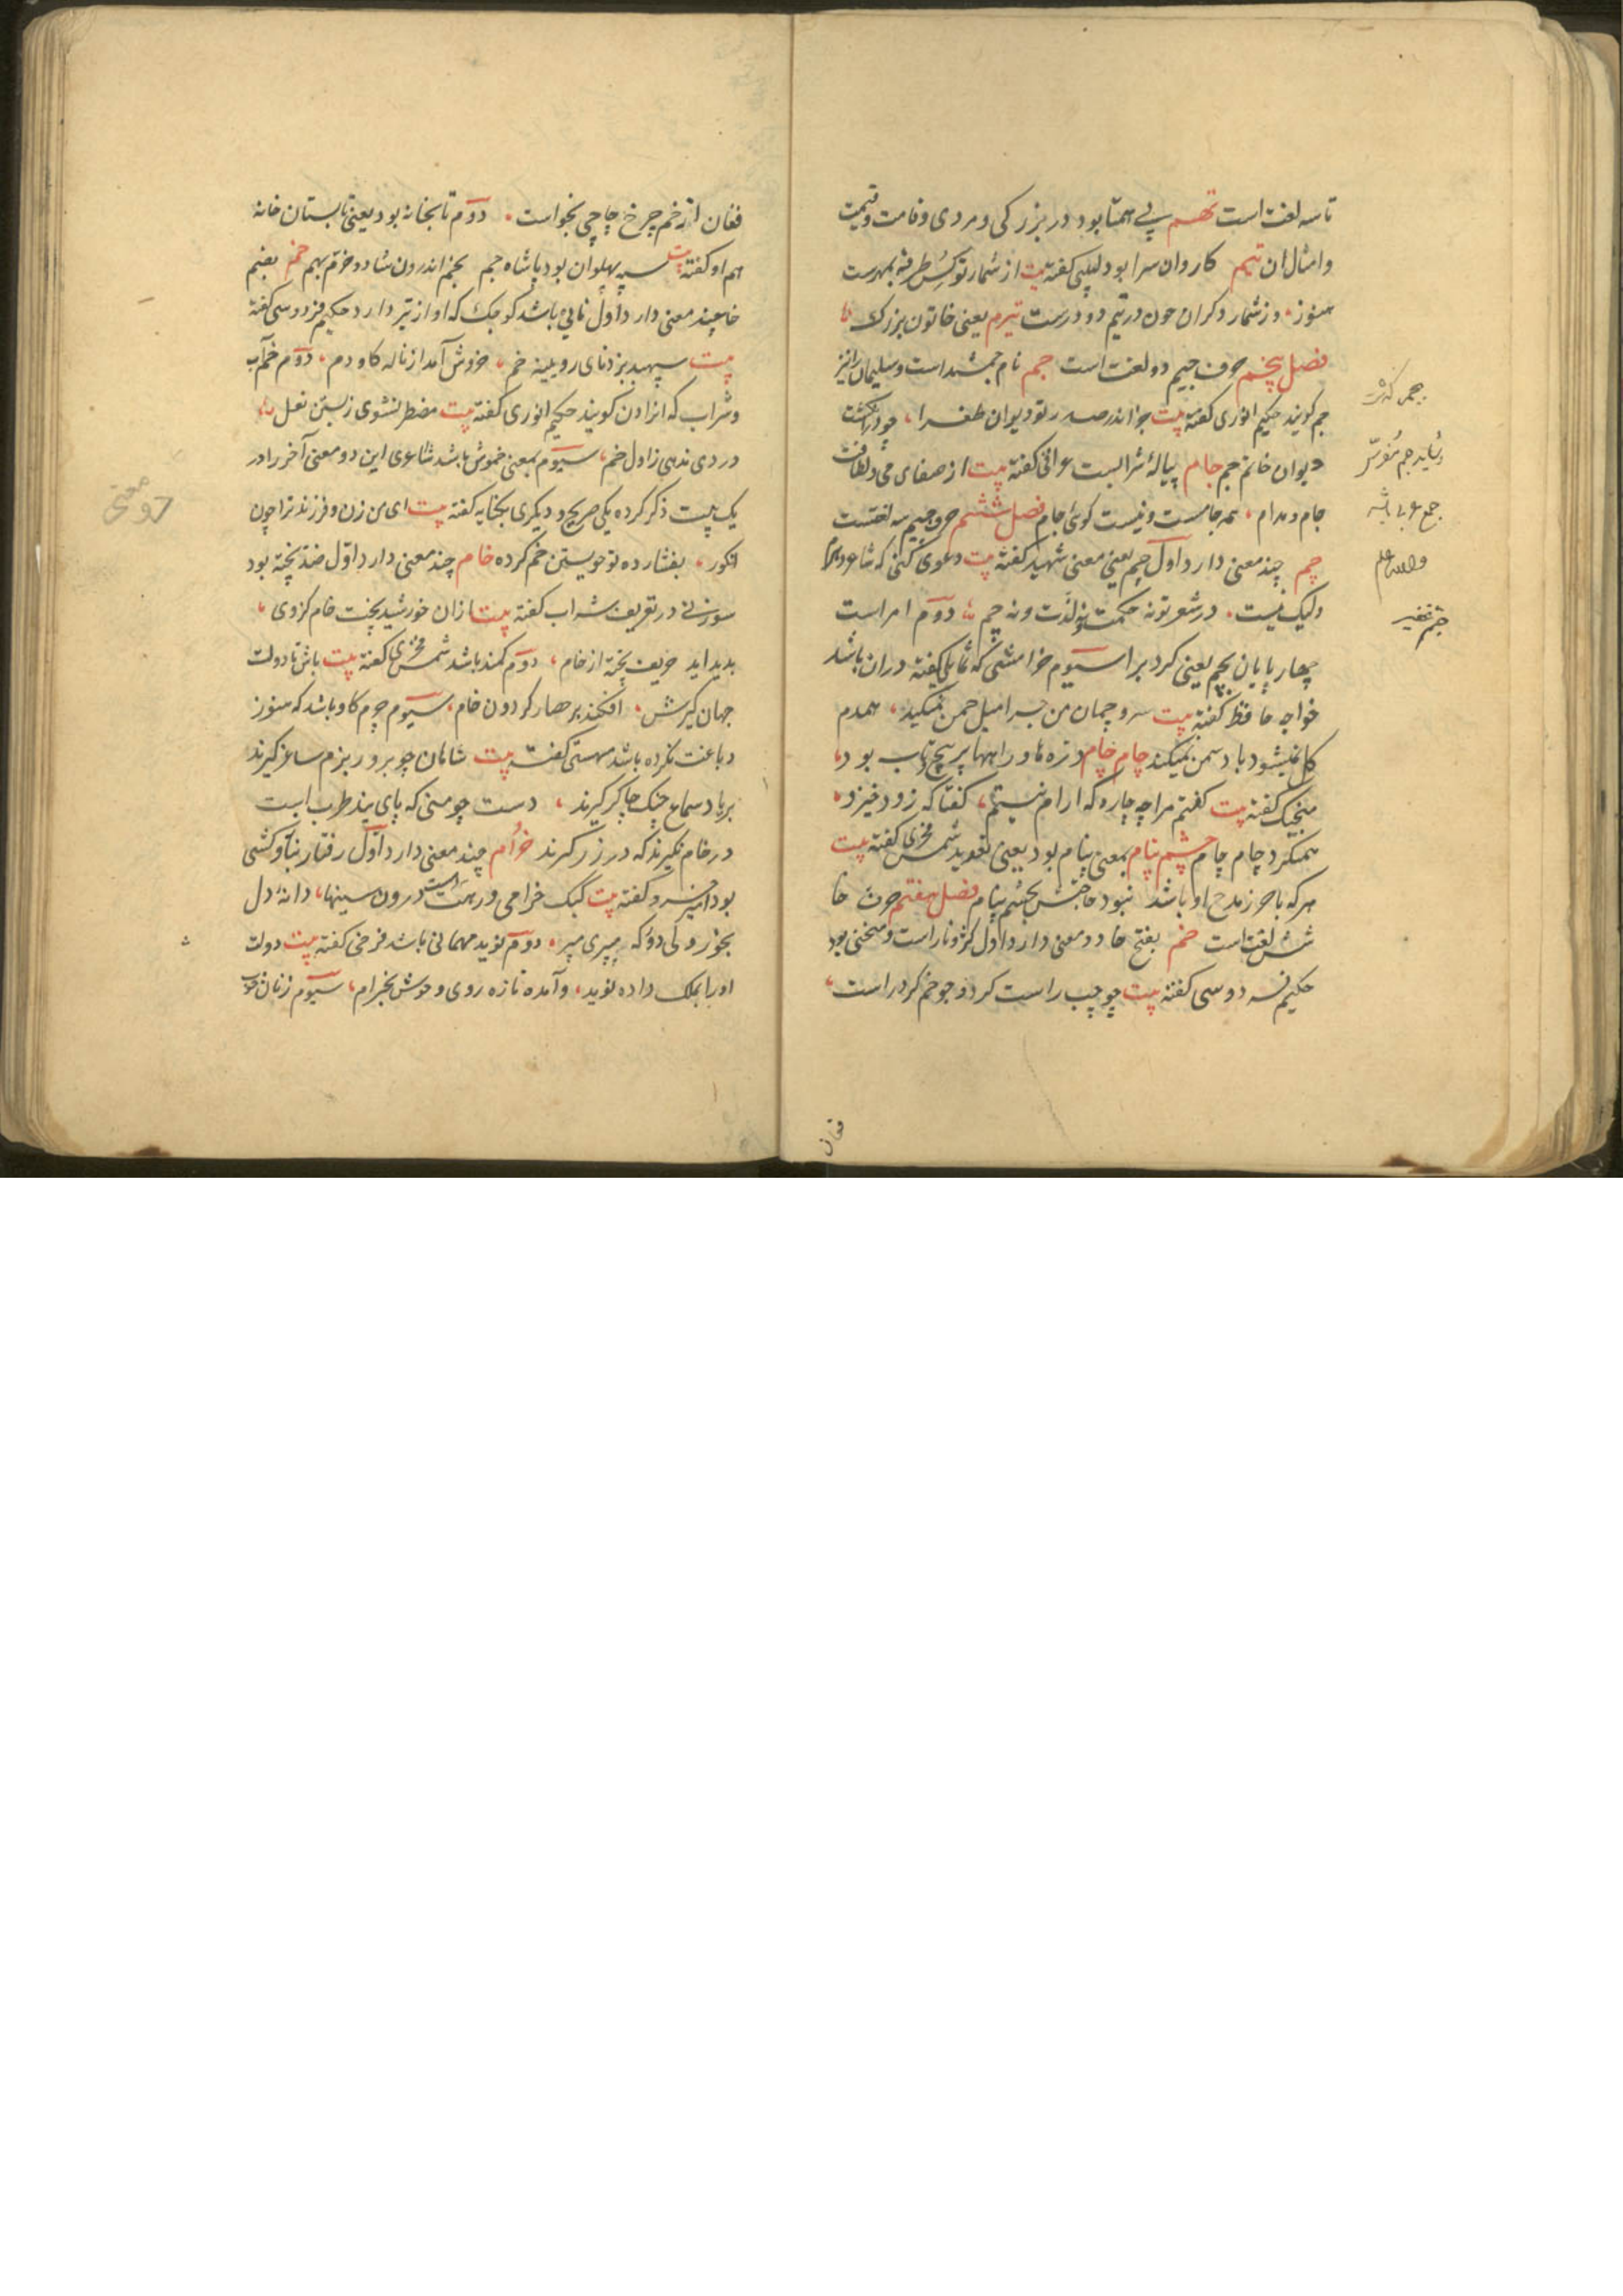 تا سه لغت است تهم بی همتا بود در بزرکی و مردی و قامت و قیمت
و امثال ان تیم کاروان سرا بود لبیبی کفته بیت از شمار تو کس طرفه بمهرست
هنوز وز شمار دکران چون در تیم دو درست تیرم یعنی خاتون بزرک
فصل پنجم حرف جیم دو لغت است جم نام جمشید است و سلیمان را نیز
جم کویند حکیم انوری کفته بیت جز اندر صدر تو دیوان طغرا چو در انکشت
دیوان خاتم جم جام پیالهٔ شرابست عراقی کفته بیت از صفای می و لطافت
جام و مدام همه جامست و نیست کوئی جام فصل ششم حرف جیم سه لغتست
چم چند معنی دارد اول چم یعنی معنی شهید کفته بیت دعوی کنی که شاعر دهرم
ولیک نیست در شعر تو نه حکمت و نه لذت و نه چم دوم امر است
چهار پایان بچم یعنی کرد برا سیوم خرامشی که تمایلی کفته در ان باشد
خواجه حافظ کفته بیت سرو چمان من چرا میل چمن نمیکند همدم
کل نمیشود یاد سمن نمیکند چام چام دره ها و راهها پر پیچ و تاب بود
منجیک کفته بیت کفتم مرا چه چاره که ارام نیستم کفتا که زود خیزد
همیکرد چام چام چشم پنام بمعنی پنام بود یعنی تعوید شمس فخری کفته بیت
هرکه با حرز مدح او باشد نبود حاجتش بچشم پنام فصل هفتم حرف خا
شش لغت است خم بفتح خا دو معنی دارد اول کژ و ناراست و منحنی بود
حکیم فردوسی کفته بیت چو چپ راست کرد و چو خم کرد راست
جمع
والله اعلم
فغان
فغان از خم چرخ چاچی بخواست دوم تابخانه بود یعنی تابستان خانه
هم او کفته بیت سپه پهلوان بود با شاه جم بخم اندرون شاد و خرم بهم خم بضم
خا چند معنی دارد اول نایی باشد کوچک که اواز تیر دارد حکیم فردوسی کفته
بیت سپهبد بزد نای رویینه خم خروش آمد از ناله کاو دم دوم خم آب
و شراب که انرا دن کویند حکیم انوری کفته بیت مضطر نشوی ز بستن نعل
دردی ندهی ز اول خم سیوم بمعنی خموش باشد شاعری این دو معنی آخر را در
یک بیت ذکر کرده یکی صریح و دیکری بکنایه کفته بیت ای من زن و فرزند ترا چون
انکور بفشارده تو خویستن خم کرده خام چند معنی دارد اول ضد پخته بود
سوزنی در تعریف شراب کفته بیت ازان خورشید پخت خام کزوی
بدید اید حریف پخته از خام دوم کمند باشد شمس فخری کفته بیت باش تا دولت
جهان کیرش افکند بر حصار کردون خام سیوم چرم کاو باشد که هنوز
دباغت نکرده باشد مهستی کفته بیت شاهان چو بروز بزم ساغر کیرند
بر یاد سماع چنک چاکر کیرند دست چو منی که پای بند طرب است
در خام نکیرند که در زر کیرند خرام چند معنی دارد اول رفتار بناز و کشی
بود امیر خسرو کفته بیت کبک خرامی و رهت است درون سینها دانهٔ دل
بخور ولی دوکه بپری مپر دوم نوید مهمانی باشد فرخی کفته بیت دولت
اورا بملک داده نوید و آمده تازه روی و خوش بخرام سیوم زنان خوب
دو معنی